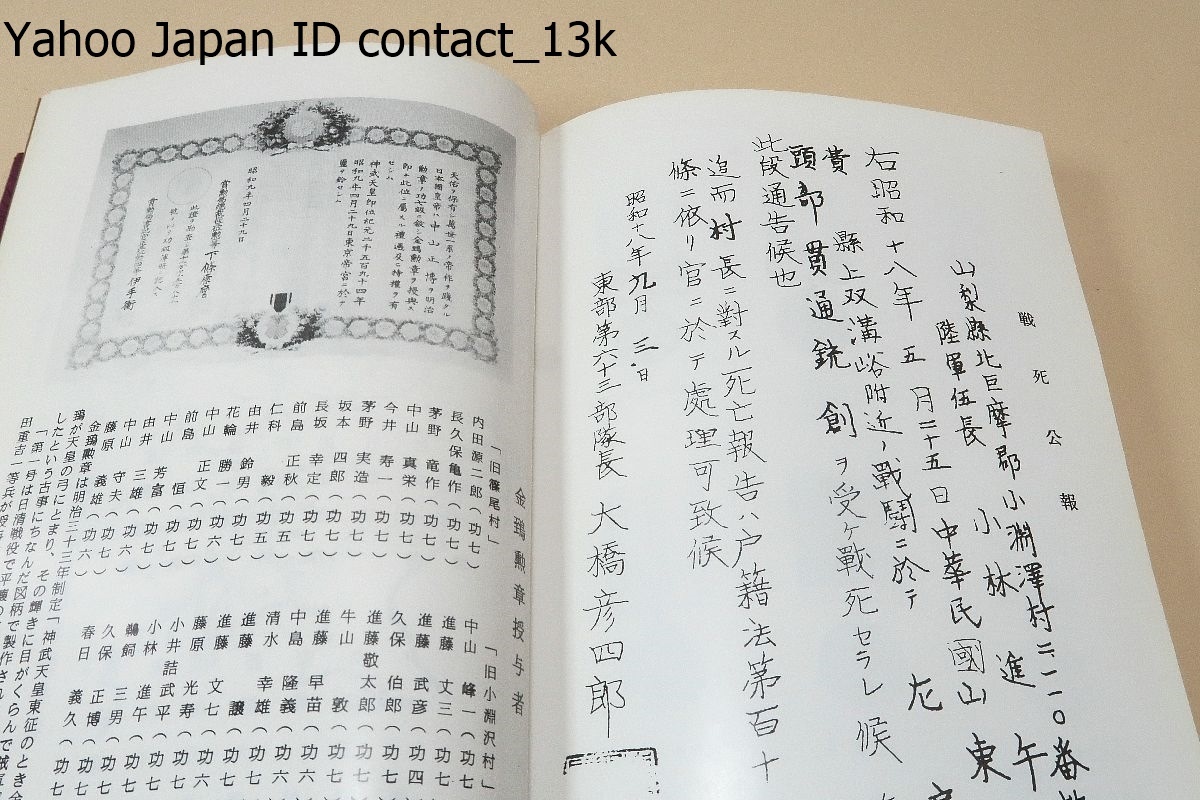 Yahoo Japan ID contact_13k
戦死公報
山梨縣北巨摩郡小淵澤村二二一〇番
陸軍伍長 小林進午
右昭和十八年五月二十五日中華民國山東
費縣上双溝峪附近ノ戰鬪ニ於テ左
頭部貫通銃創ヲ受ケ戰死セラレ候
此段通告候也
追而村長ニ對スル死亡報告ハ戸籍法第百十
條ニ依リ官ニ於テ處理可致候
昭和十八年九月三日
東部第六十三部隊長 大橋彦四郎
天佑ヲ保有シ萬世一系ノ帝祚ヲ踐タル
日本國皇帝ハ中山正博ヲ明治
勲章ノ功七級ニ敍シ金鵄勲章ヲ授與ス
即チ此位ニ屬スル禮遇及ヒ特權ヲ有
セシム
神武天皇即位紀元二千五百九十四年
昭和九年四月二十九日東京帝宮ニ於テ
璽ヲ鈐セシム
昭和九年四月二十九日
金鵄勲章授与者
「旧篠尾村」
内田源二郎(功七)
長久保亀作(功七)
茅野 竜作(功七)
中山 真栄(功七)
今井 寿一(功七)
茅野 実造(功七)
坂本 四郎(功七)
長坂 幸定(功七)
前島 正秋(功七)
仁科 毅(功五)
由井 鈴男(功五)
花輪 勝一(功七)
中山 正文(功六)
前島 恒(功七)
中山 芳富(功七)
由井 三雄(功七)
中山 守夫(功六)
藤原 義雄(功六)
「旧小淵沢村」
中山 峰一(功七
進藤 丈三(功七
進藤 武彦(功四
久保 伯郎(功七
進藤敬太郎(功七
牛山 敦(功七
進藤 早苗(功七
中島 隆義(功六
清水 幸雄(功六
進藤 譲(功七
進藤 文七(功七
藤原 光寿(功六
小井詰武平(功七
小林 進午(功七
鵜飼 三男(功七
久保 正博(功七
春日 義久(功七
金鵄勲章は明治三十三年制定「神武天皇東征のとき金
鵄が天皇の弓にとまり、その輝きに目がくらんで賊軍
したという古事にちなんだ図柄で製作され
「第一号は日清戦役で平壌の
田重吉一等兵が授与